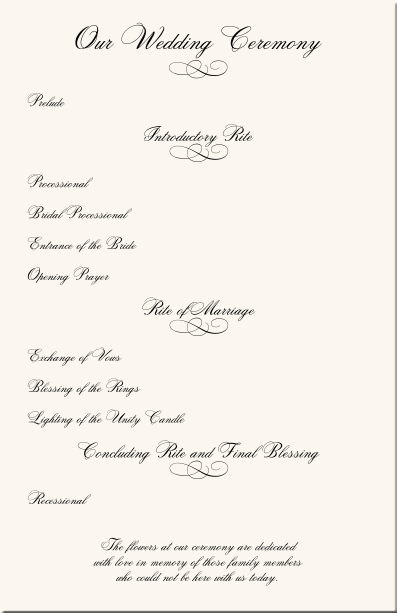 Our Wedding Ceremony
Prelude
Introductory Rite
Processional
Bridal Processional
Entrance of the Bride
Opening Prayer
Rite of Marriage
Exchange of Vows
Blessing of the Rings
Lighting of the Unity Candle
Concluding Rite and Final Blessing
Recessional
The flowers at our ceremony are dedicated
with love in memory of those family members
who could not be here with us today.